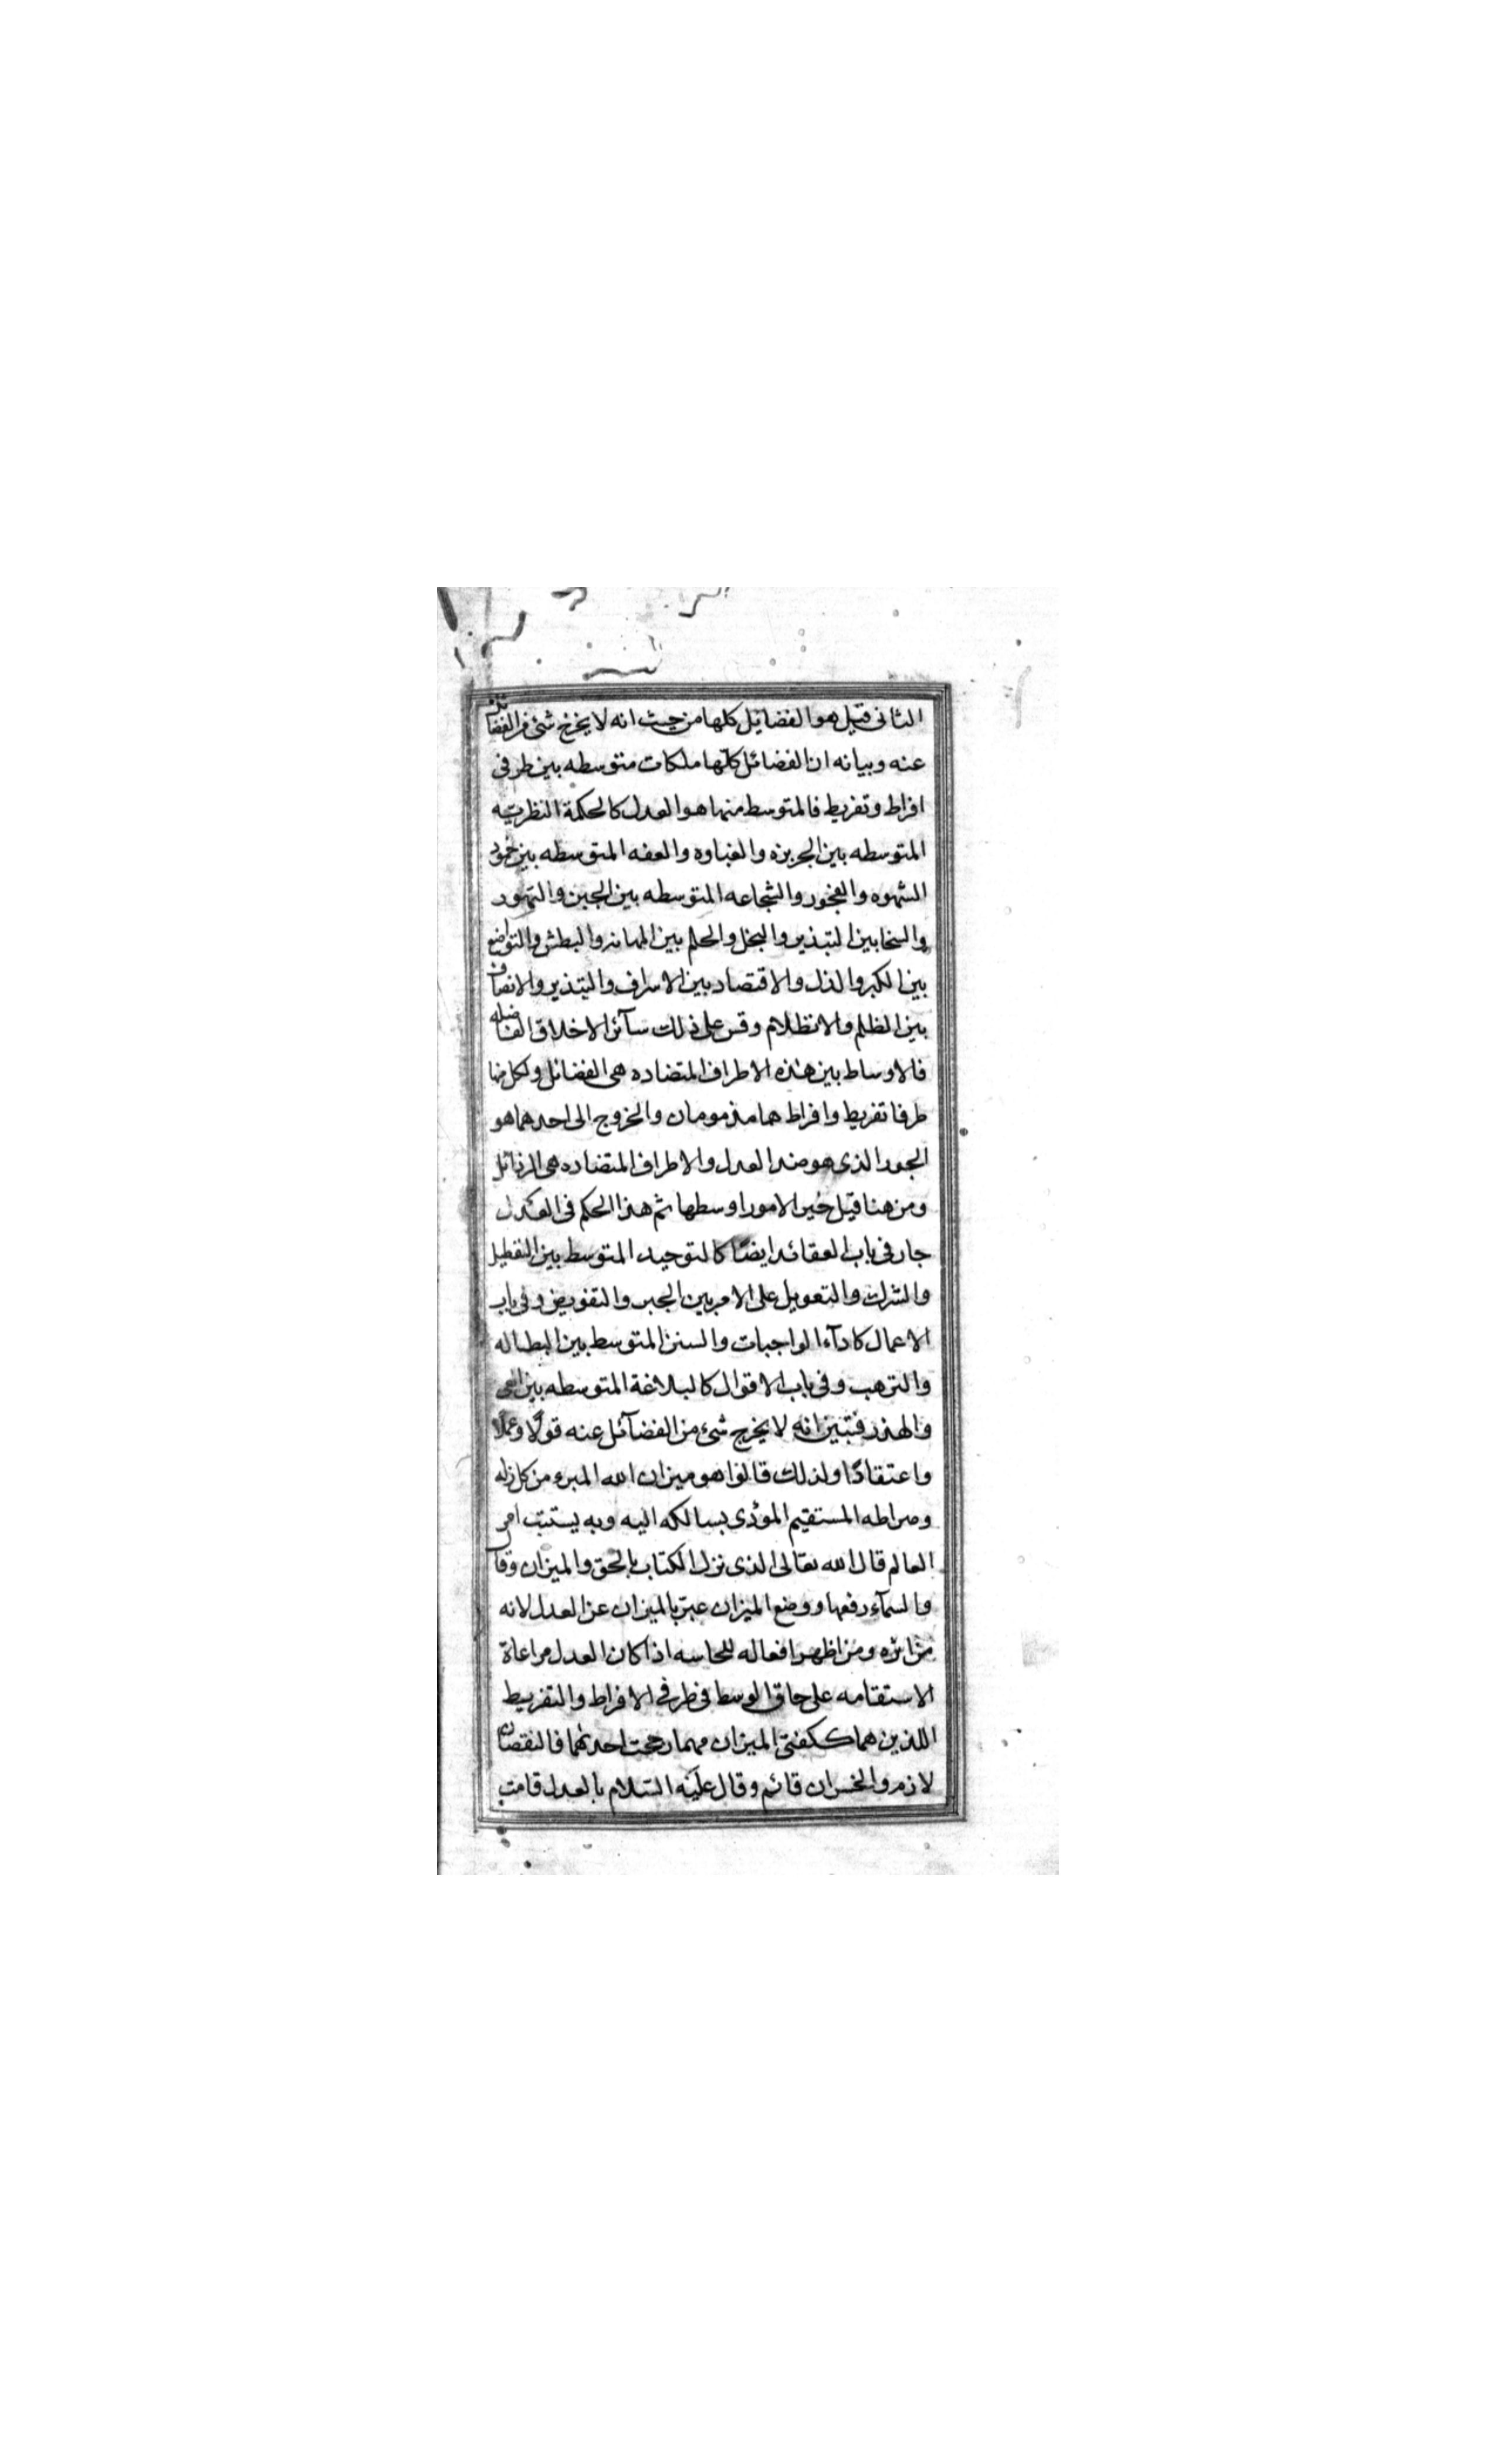 الثانى قيل هو الفضائل كلها من حيث انه لا يخرج شئ من الفضائل
عنه وبيانه ان الفضائل كلها ملكات متوسطه بين طرفى
افراط وتفريط فالمتوسط منها هو العدل كالحكمة النظريه
المتوسطه بين الجربزه والغباوه والعفه المتوسطه بين خمود
الشهوه والفجور والشجاعه المتوسطه بين الجبن والتهور
والسخا بين التبذير والبخل والحلم بين المهانه والبطش والتواضع
بين الكبر والذل والاقتصاد بين الاسراف والتبذير والانصاف
بين الظلم والانظلام وقس على ذلك سآئر الاخلاق الفاضله
فالاوساط بين هذه الاطراف المتضاده هى الفضائل ولكل منها
طرفا تفريط وافراط هما مذمومان والخروج الى احدهما هو
الجور الذى هو ضد العدل والاطراف المتضاده هى الرذائل
ومن هنا قيل خير الامور اوسطها ثم هذا الحكم فى العدل
جار فى باب العقائد ايضًا كالتوحيد المتوسط بين التعطيل
والشرك والتعويل على الامر بين الجبر والتفويض وفى باب
الاعمال كادآء الواجبات والسنن المتوسط بين البطاله
والترهب وفى باب الاقوال كالبلاغة المتوسطه بين العى
والهذر فتبين انه لا يخرج شئ من الفضآئل عنه قولًا وعملًا
واعتقادًا ولذلك قالوا هو ميزان الله المبرء من كل زله
وصراطه المستقيم المؤدى بسالكه اليه وبه يستتب امر
العالم قال الله تعالى الذى نزل الكتاب بالحق والميزان وقال
والسمآء رفعها ووضع الميزان عبر بالميزان عن العدل لانه
من اثره ومن اظهر افعاله للحاسه اذا كان العدل مراعاة
الاستقامه على حاق الوسط فى طرفى الافراط والتفريط
اللذين هما ككفتى الميزان مهما رجحت احدىهما فالنقصان
لازم والخسران قائم وقال عليه السلام بالعدل قامت